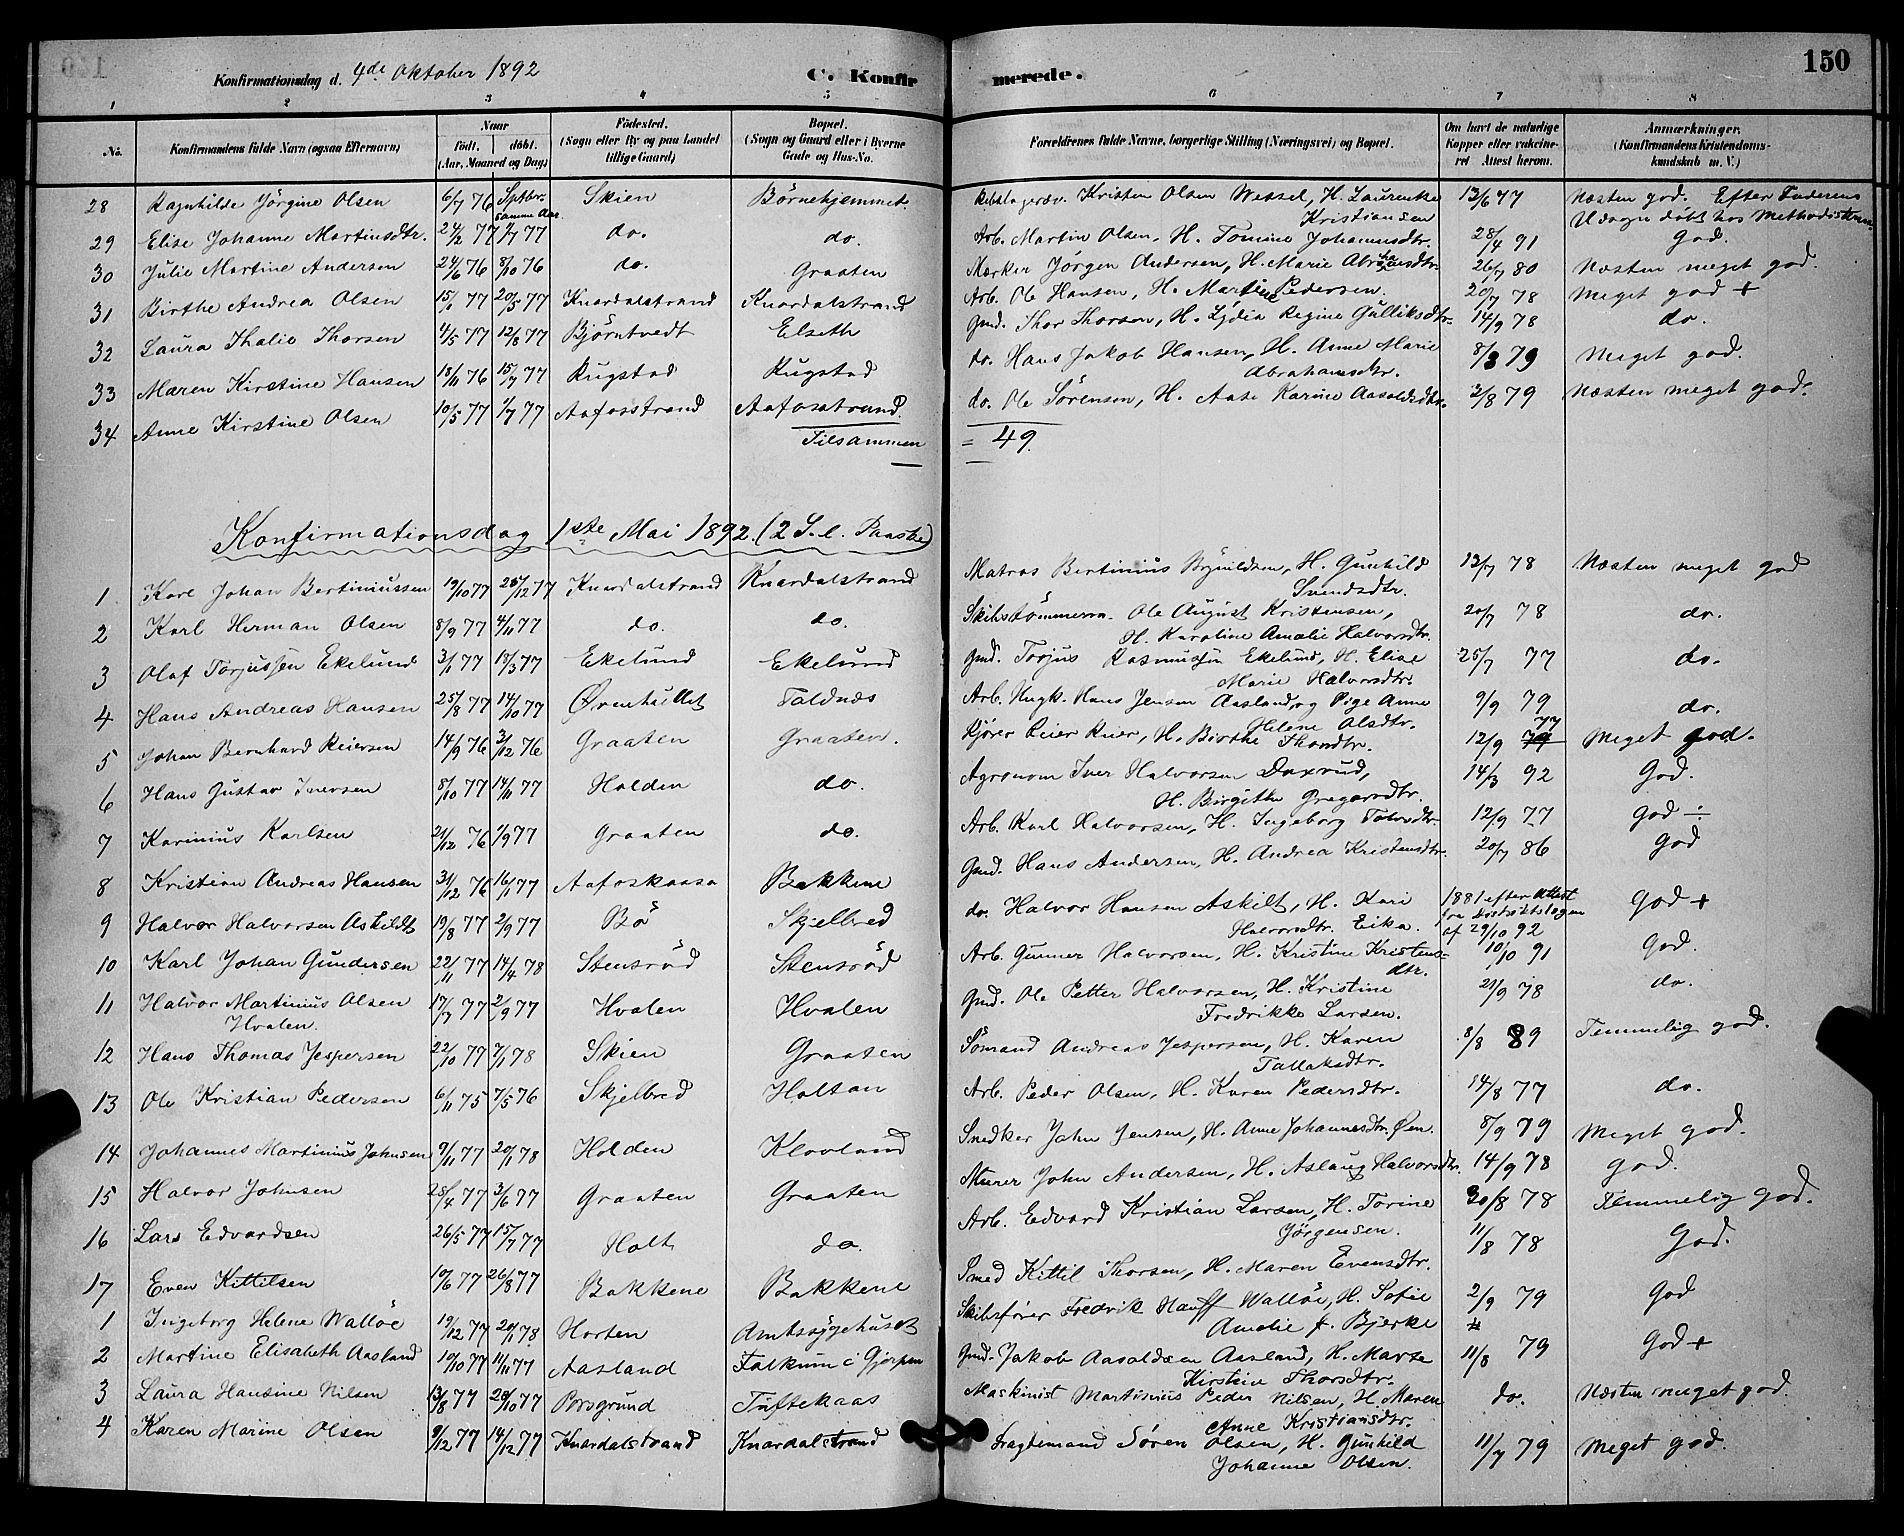 Konfirmationsdag d. 4de Oktober 1892 C. Konfirmerede. 150
1 2 3 4 5 6 7 8
No. Konfirmandens fulde Navn (ogsaa Efternavn) Naar født. døbt. (Aar, Maaned og Dag) Fødested. (Sogn eller By og paa Landet tillige Gaard) Bopæl. (Sogn og Gaard eller i Byerne Gade og Hus-No. Forældrenes fulde Navne, borgerlige Stilling (Næringsvei) og Bopæl. Om havt de naturlige Kopper eller vakcineret Attest herom. Anmærkninger. (Konfirmandens Kristendomskundskab m. V.)
28 Ragnhilde Jörgine Olsen 6/7 76 Septbr. samme Aar Skien Börnehjemmet. Kristen Olsen Wetsel, H. Laurentze Kristiansen 13/6 77 Næsten god. Efter Faderens Udsagn döbt hos Methodisterne.
29 Elise Johanne Martinsdtr. 24/2 77 1/7 77 do. do. Arb. Martin Olsen, H. Tomine Johannesdtr. 28/4 91 God.
30 Julie Martine Andersen 24/6 76 8/10 76 do. Graaten Mærker Jörgen Andersen, H. Marie Abrahamsdtr. 26/7 80 Næsten meget god.
31 Birthe Andrea Olsen 15/1 77 20/5 77 Knardalstrand Knardalstrand Arb. Ole Hansen, H. Martine Pedersen. 20/7 78 Meget god +
32 Laura Thalie Thorsen 4/5 77 12/8 77 Björntvedt Elseth Gmd. Thor Thorsen, H. Lydia Regine Gulliksdtr. 14/9 78 do.
33 Maren Kirstine Hansen 18/11 76 15/7 77 Rugstad Rugstad do. Hans Jakob Hansen, H. Anne Marie Abrahamsdtr. 8/8 79 Meget god.
34 Anne Kirstine Olsen 10/5 77 1/7 77 Aafosstrand Aafosstrand. do. Ole Sörensen, H. Aase Karine Aasoldsdtr. 2/8 79 Næsten meget god.
Tilsammen = 49.
Konfirmationsdag 1ste Mai 1892. (2 S. e. Paaske)
1 Karl Johan Bertiniussen 19/10 77 26/12 77 Knardalstrand Knardalstrand Matros Bertinius Brynildsen, H. Gunhild Svendsdtr. 13/7 78 Næsten meget god
2 Karl Herman Olsen 8/9 77 4/11 77 do. do. Skibstömmerm. Ole August Kristensen, H. Karoline Amalie Halvorsdtr. 20/7 78 do.
3 Olaf Torjussen Ekelund 3/1 77 18/3 77 Ekelund Ekelund Gmd. Torjus Rasmussen Ekelund, H. Elise Marie Halvorsdtr. 25/7 77 do.
4 Hans Andreas Hansen 25/8 77 14/10 77 Øverhallet Toldnæs Arb. Ungk. Hans Jensen Aasland, og Pige Anne Helene Olsdtr. 9/9 79 do.
5 Johan Bernhard Reiersen 14/9 76 3/12 76 Graaten Graaten. Kjører Reier Reier, H. Birthe Thordtr. 12/9 77 Meget god.
6 Hans Gustav Iversen 8/10 77 14/11 77 Holden do. Agronom Iver Halvorsen Daxrud, H. Birgitte Gregersdtr. 14/3 92 God.
7 Karinius Karlsen 21/12 76 1/9 77 Graaten do. Arb. Karl Halvorsen, H. Ingeborg Tolvsdtr. 12/9 77 God ÷
8 Kristian Andreas Hansen 31/12 76 16/1 77 Aafoskaasa Bakkene Gmd. Hans Andersen, H. Andrea Kristensdtr. 20/7 86 God
9 Halvor Halvorsen Askildt 19/8 77 2/9 77 Bö Skjelbred do. Halvor Hansen Askilt, H. Kari Halvorsdtr. Eika. 1881 efter Attest fra Distriktslægen af 29/10 92 God +
10 Karl Johan Gundersen 22/11 77 14/4 78 Stensröd Stensröd Arb. Gunner Halvorsen, H. Kristine Kristensdtr. 10/10 91 God.
11 Halvor Martinius Olsen Hvalen. 17/7 77 2/9 77 Hvalen Hvalen Gmd. Ole Petter Halvorsen, H. Kristine Fredrikke Larsen. 21/9 78 do.
12 Hans Thomas Jespersen 22/10 77 7/1 78 Skien Graaten Sömand Andreas Jespersen, H. Karen Tallaksdtr. 8/8 89 Temmelig god.
13 Ole Kristian Pedersen 6/11 75 7/5 76 Skjelbred Holtan Arb. Peder Olsen, H. Karen Pedersdtr. 14/8 77 do.
14 Johannes Martinius Johnsen 9/11 77 20/1 78 Holden Klovland Snedker John Jensen, H. Anne Johannesdtr. Øen. 8/9 79 Meget god.
15 Halvor Johnsen 25/4 77 3/6 77 Graaten Graaten Murer John Andersen, H. Aslaug Halvorsdtr. 14/9 78 God.
16 Lars Edvardsen 26/5 77 15/7 77 Holt do. Arb. Edvard Kristian Larsen, H. Torine Jörgensen. 30/8 78 Temmelig god.
17 Even Kittilsen 10/6 77 26/8 77 Bakkene Bakkene Smed Kittil Thorsen, H. Maren Evensdtr. 11/8 78 God.
1 Ingeborg Helene Wallöe 19/12 77 20/1 78 Horten Amtssygehuset Skibsfører Fredrik Hauff Wallöe, H. Sofie Amalie f. Bjerke 2/9 79 God
2 Martine Elisabeth Aasland 10/10 77 11/11 77 Aasland Falkum i Gjerpen Gmd. Jakob Aasoldsen Aasland, H. Marte Kirstine Thorsdtr. 11/8 79 God +
3 Laura Hansine Nilsen 13/8 77 28/10 77 Porsgrund Tuftekaas Maskinist Martinius Peder Nilsen, H. Maren Anne Kristiansdtr. do. Næsten meget god.
4 Karen Marine Olsen 9/12 77 14/12 77 Knardalstrand Knardalstrand Fragtemand Sören Olsen, H. Gunhild Johanne Olsen. 11/7 79 Meget god.